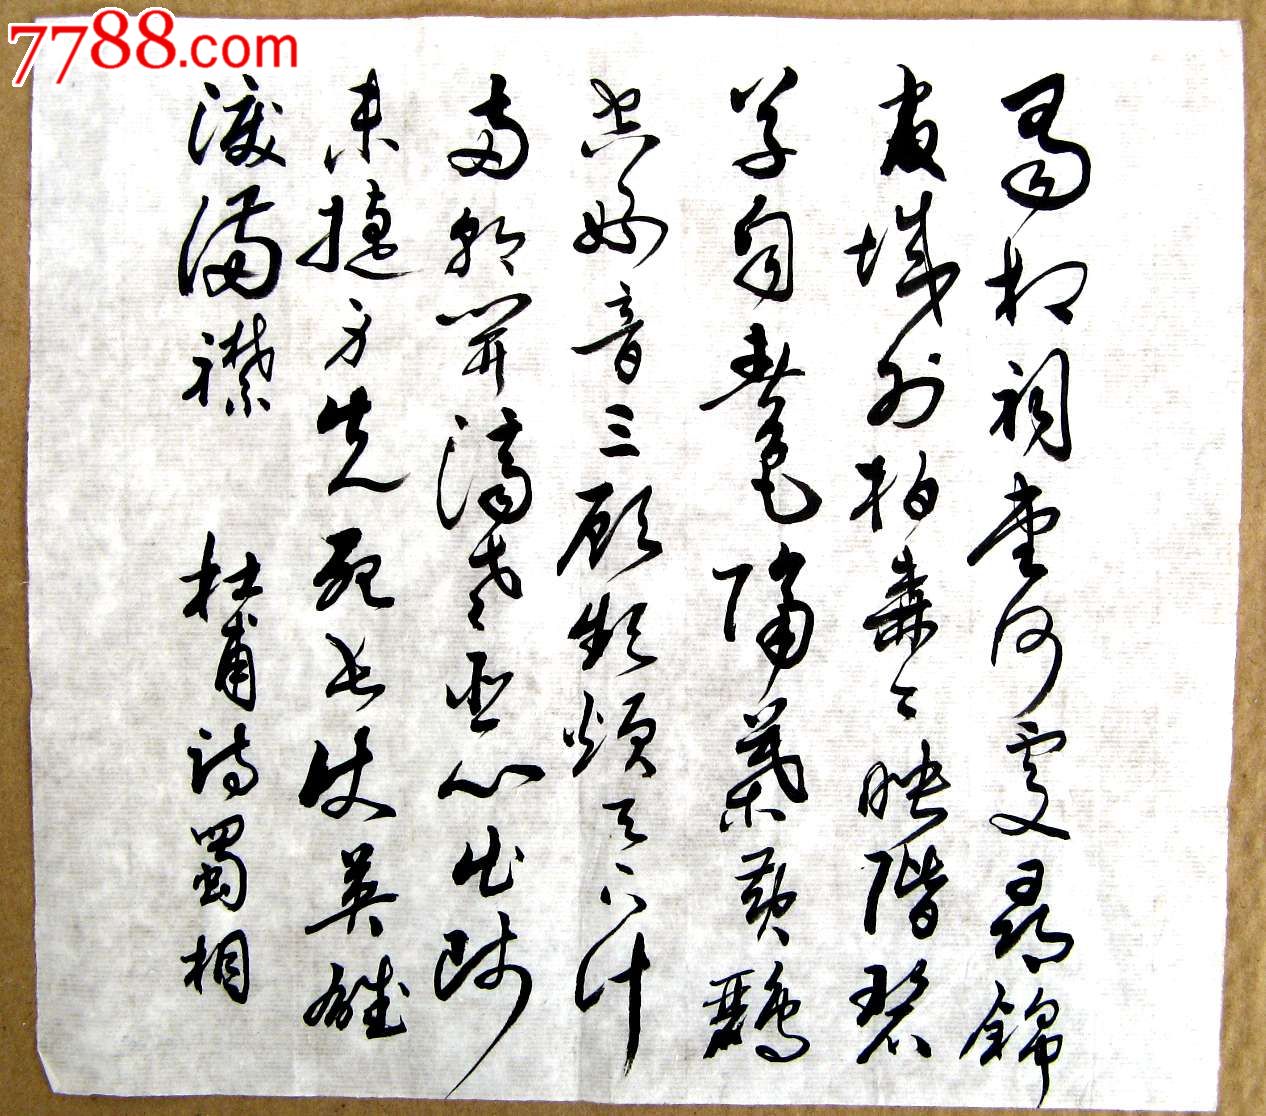 7788.com
蜀相祠堂何處尋錦
官城外柏森々映階碧
草自春色隔葉黃鸝
空好音三顧頻煩天下計
兩朝開濟老臣心出師
未捷身先死長使英雄
淚滿襟 杜甫詩蜀相